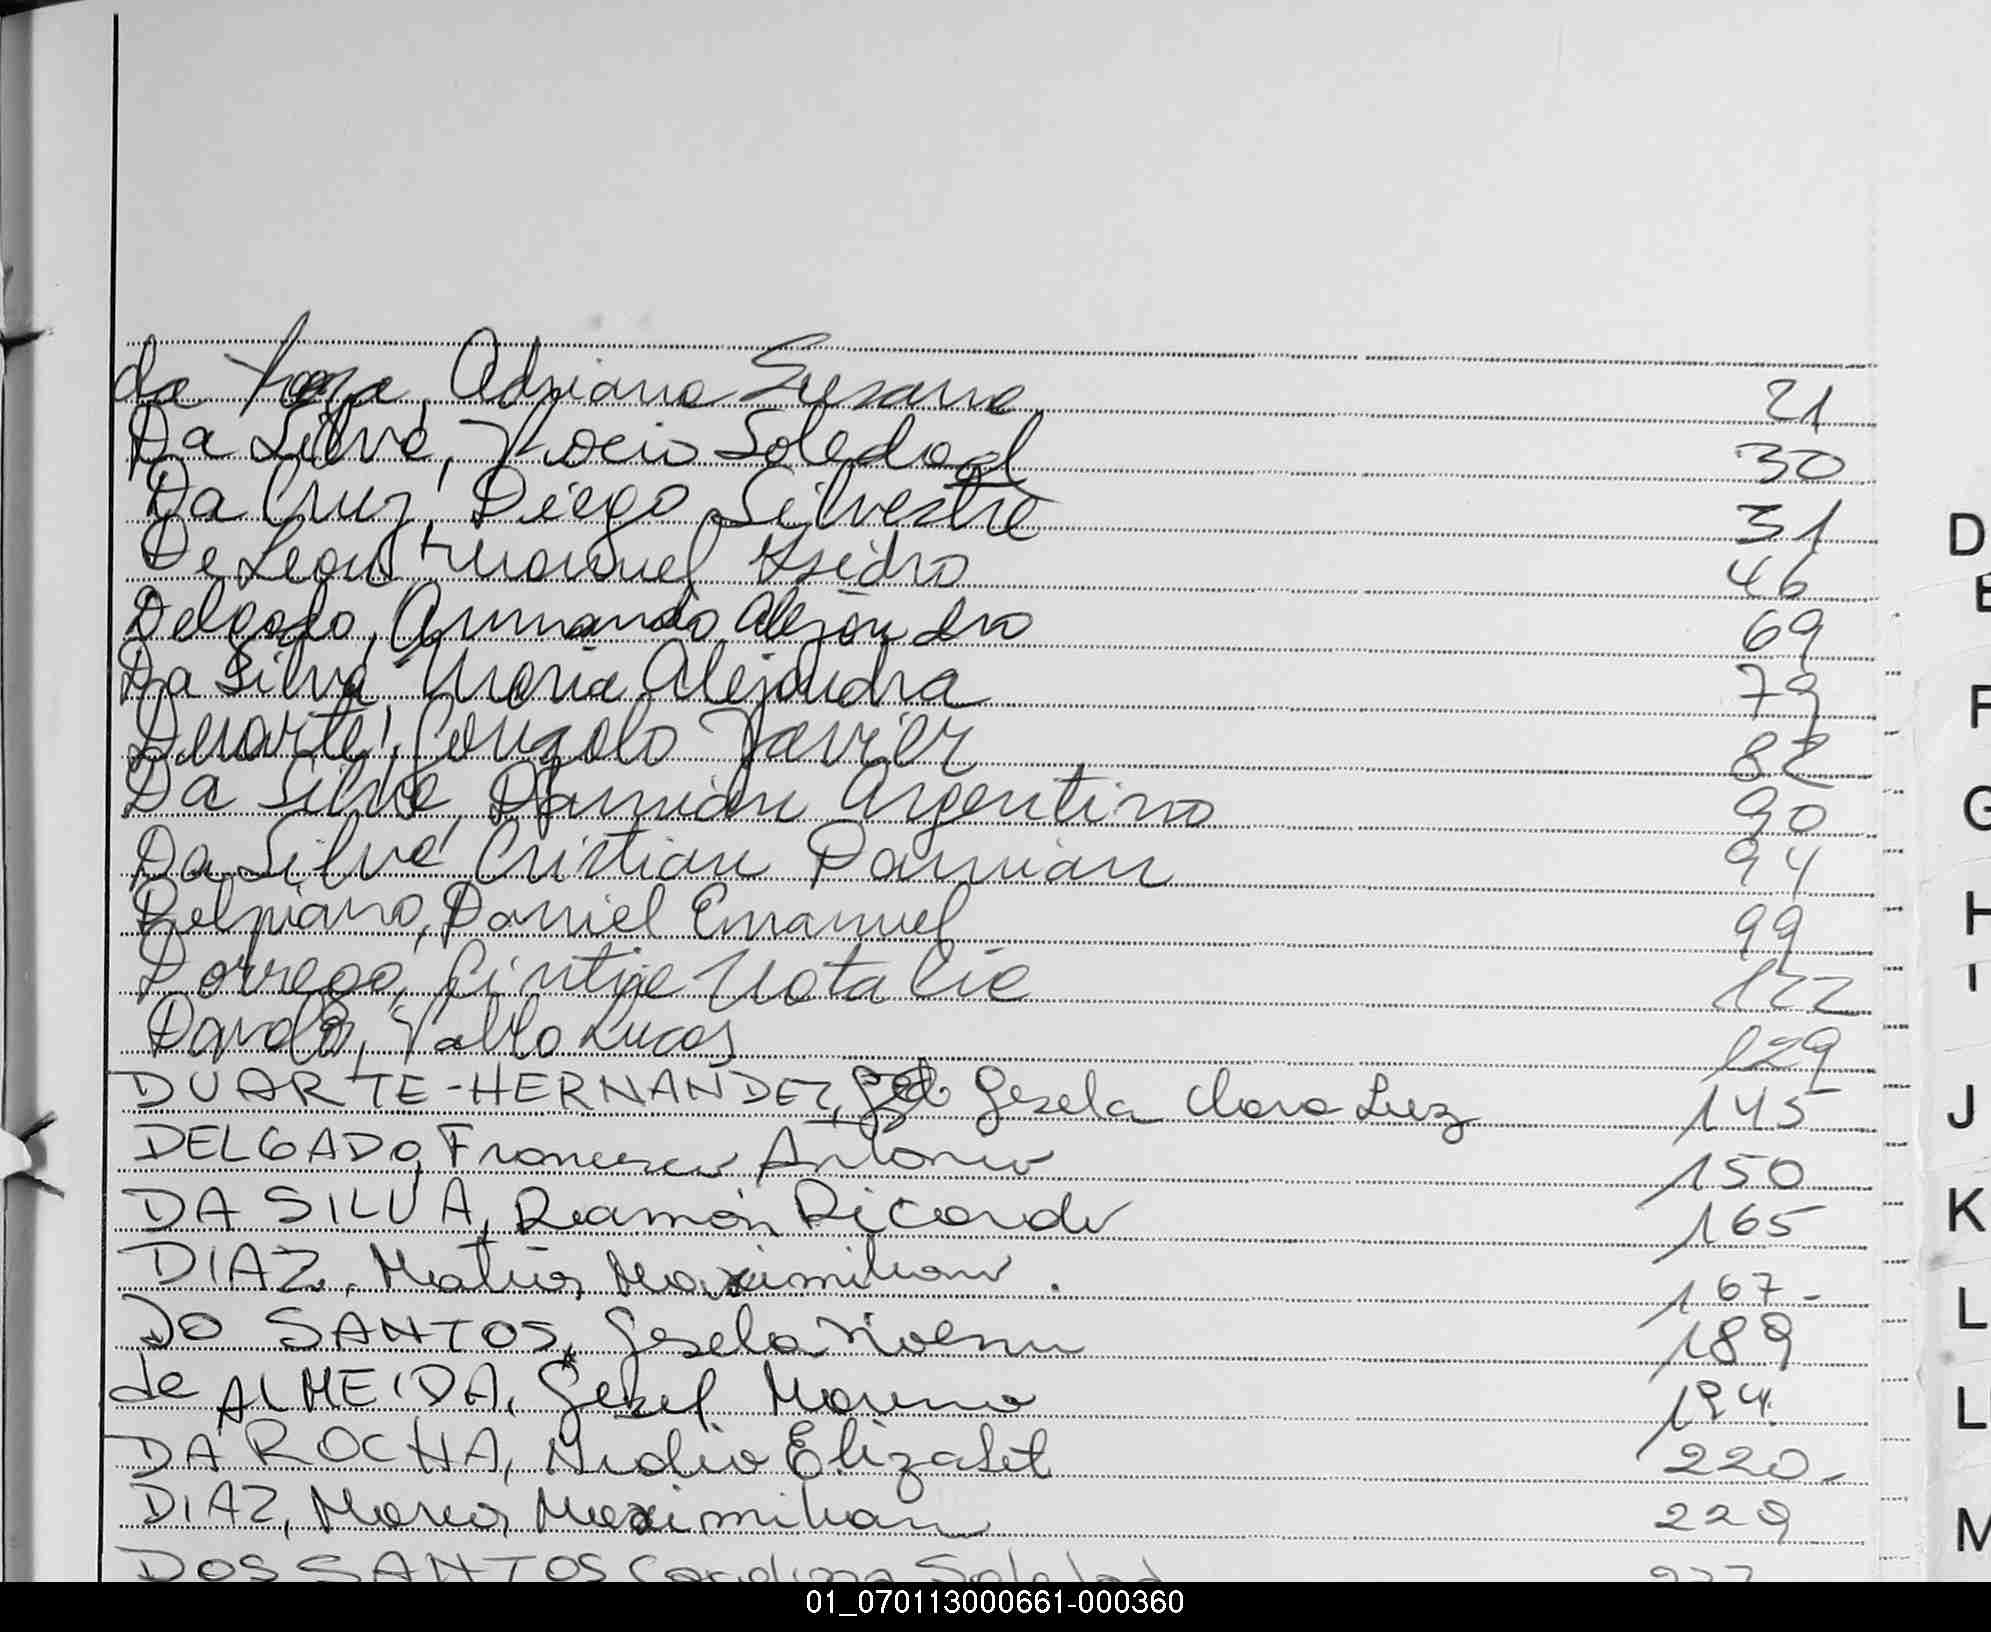 da Adriana Susana 21
Da Silva, Rocio Soledad 30
Da Cruz, Diego Silvestre 31
De Leon, Manuel Isidro 46
Delgado, Armando Alejandro 69
Da Silva, Maria Alejandra 79
Duarte, Gonzalo Javier 82
Da Silva, Damián Argentino 90
Da Silva, Cristian Damian 94
Delpiano, Daniel Emanuel 99
Dorrego, Cintya Natalia 122
Pablo Lucas 129
DUARTE-HERNANDEZ, Gesela Clara Luz 145
DELGADO, Francisco Antonio 150
DA SILVA, Ramón Ricardo 165
DIAZ, Matias Maximiliano. 167-
DO SANTOS, Gesela Noemi 189
de ALMEIDA, Gesel 194.
DA ROCHA, Nidia Elizabet 220-
DIAZ, Marcos Maximilian 229
DOS SANTOS Carolina Soledad
D
E
F
G
H
I
J
K
L
L
M
01_070113000661-000360